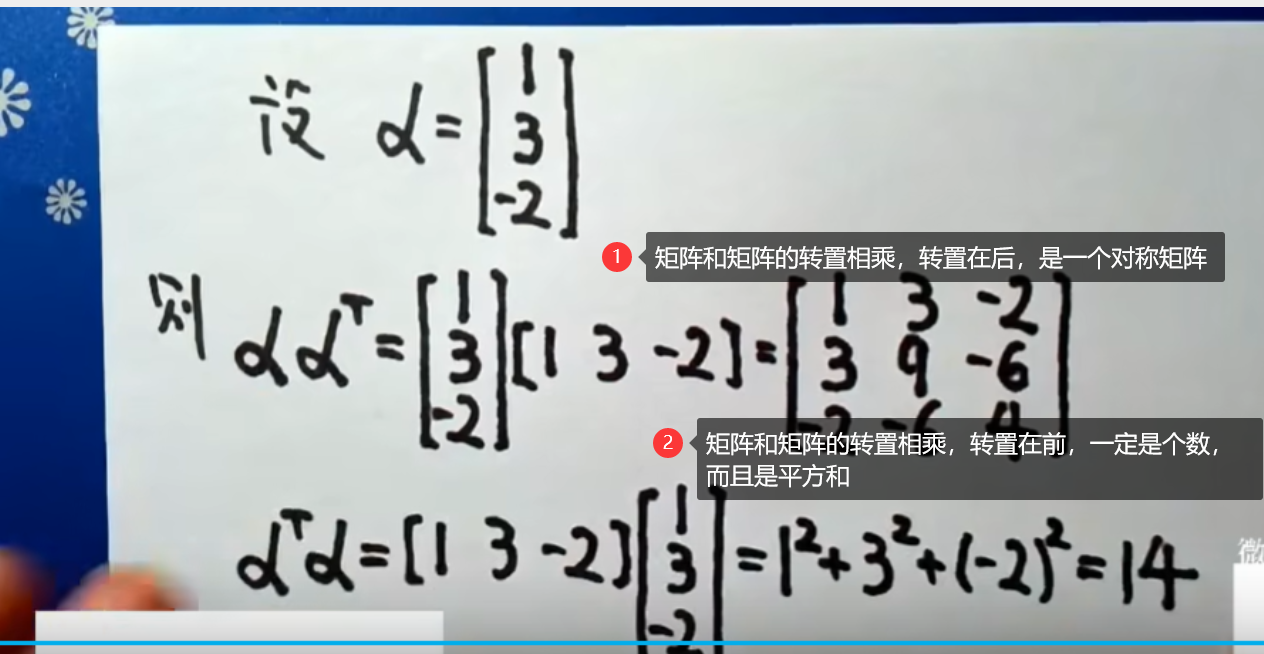 设 α = [1 3 -2]
① 矩阵和矩阵的转置相乘，转置在后，是一个对称矩阵
则 αα^T = [1 3 -2] [1 3 -2] = [1 3 -2 3 9 -6 -2 -6 4]
② 矩阵和矩阵的转置相乘，转置在前，一定是个数，
而且是平方和
α^Tα = [1 3 -2] [1 3 -2] = 1²+3²+(-2)² = 14
微